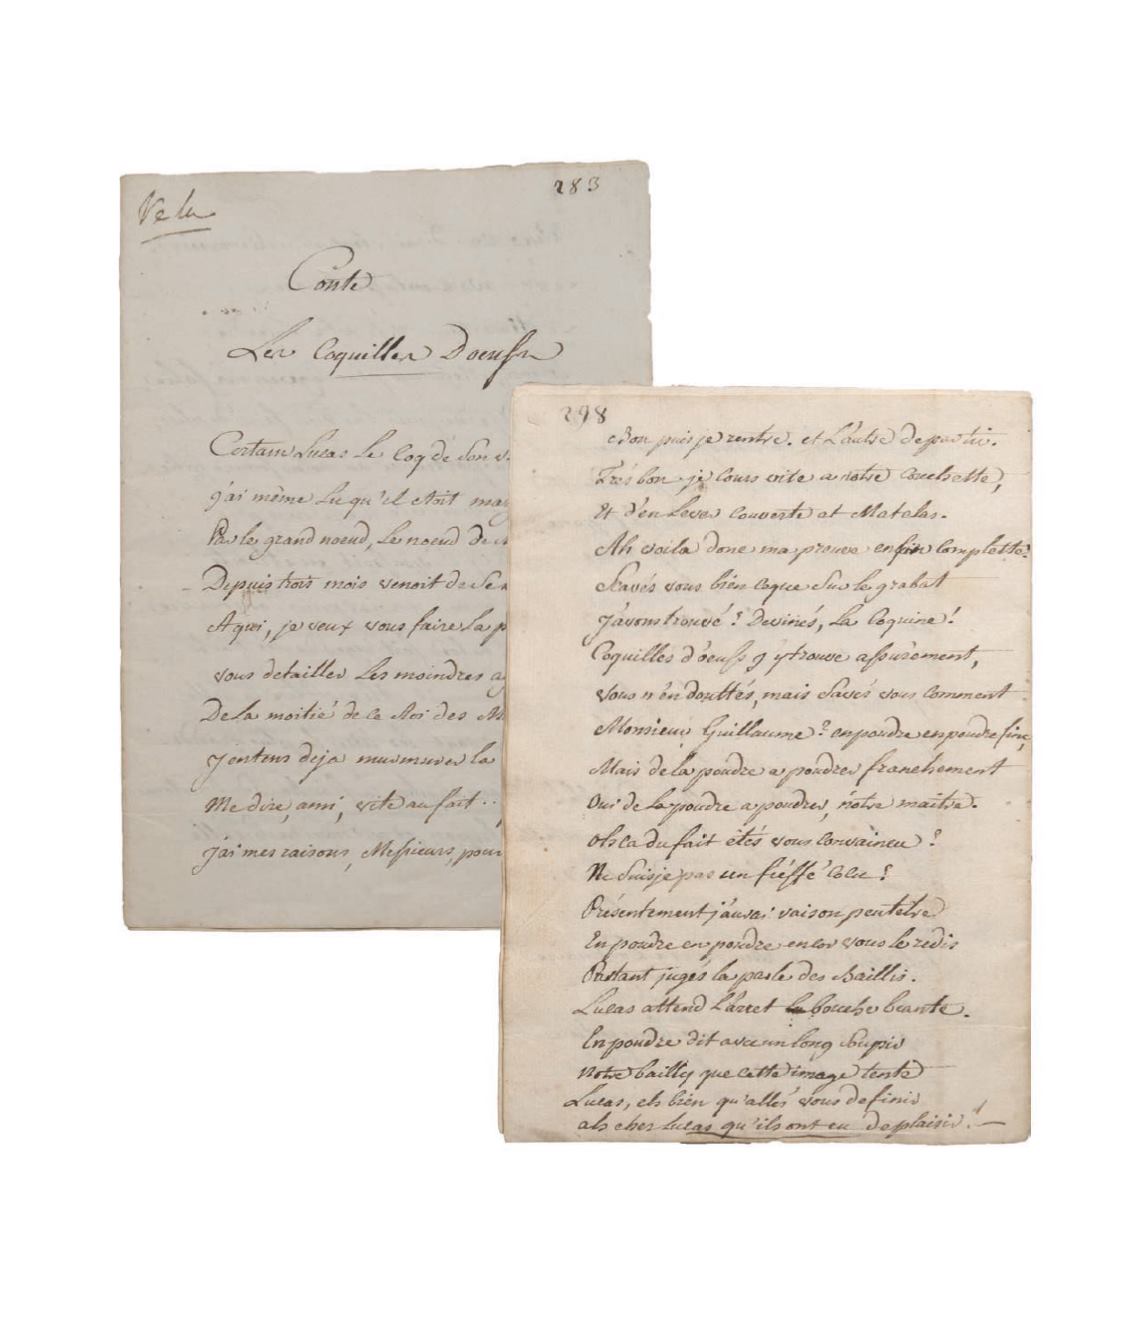 Ve la
283
Conte
Les Coquilles D'oeufs
Certain Lucas le Coq de Son v
j'ai même Lu qu'il etoit ma
Par le grand noeud, le noeud de
Depuis trois mois venoit de Se
A qui, je veux vous faire la p
vous detailler les moindres a
De la moitié de ce Roi des M
J'entens deja murmurer la
Me dire, ami, vite au fait ..
j'ai mes raisons, Messieurs, pour
298
Bon puis je rentre. et L'autre de partir.
Trés bon je Cours vite a notre Couchette,
Et d'en Lever Couverte et Matelas.
Ah voila donc ma preuve enfin Complette!
Scavés vous bien Ceque Sur le grabat
J'avons trouvé? Devinés, la Coquine!
Coquilles d'oeufs g'y trouve assurement,
Vous n'en douttés, mais Savés vous Comment
Monsieur Guillaume? en poudre en poudre fine,
Mais de la poudre a poudrer franchement
Oui de la poudre a poudrer, nôtre maitre.
Oh ca du fait étés vous Convaincu?
Ne Suis je pas un fiéffé Cocu?
Présentement j'aurai raison peutetre
En poudre en poudre encor vous le redis
Partant jugés la perle des Baillis.
Lucas attend L'arret la bouche beante.
En poudre dit avec un long Soupir
Notre bailly que cette image tente
Lucas, eh bien qu'allés vous definir
ah cher Lucas qu'ils ont eu de plaisir!